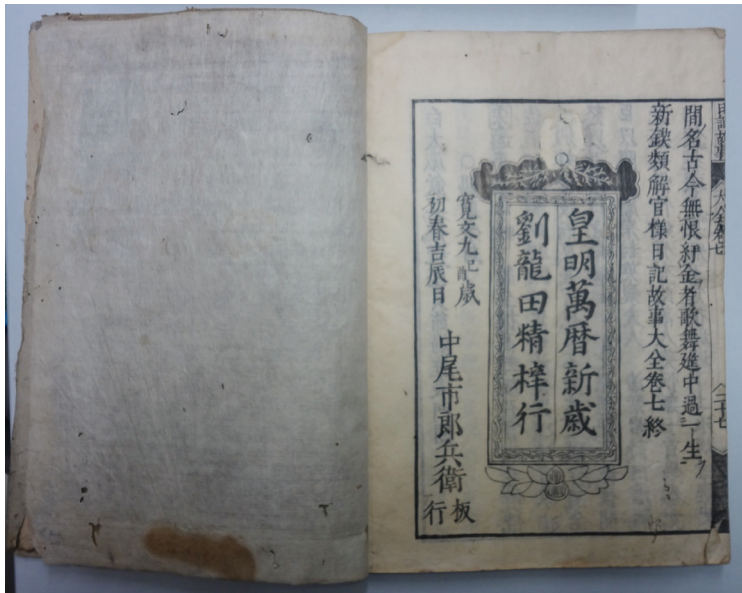 日記故事
大全卷七
二十七
間名古今無恨紆金者歌舞筵中過一生
新鍥類解官樣日記故事大全卷七終
皇明萬曆新歲
劉龍田精梓行
寬文九己酉歲
初春吉辰日
中尾市郎兵衛板行